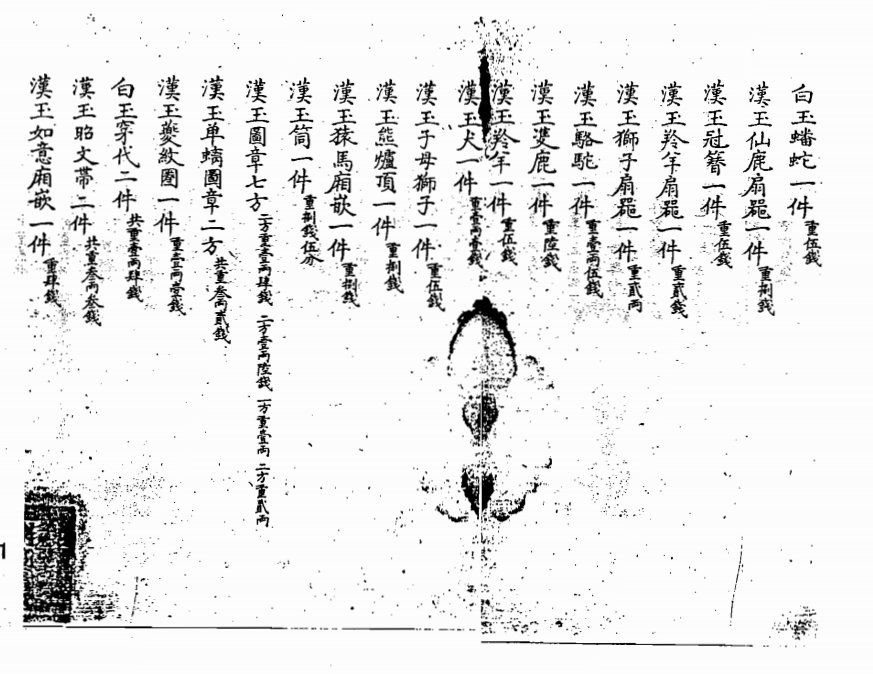 白玉蟠蛇一件 重伍錢
漢玉仙鹿扇器一件 重捌錢
漢玉冠簪一件 重伍錢
漢玉羚羊扇器一件 重貳錢
漢玉獅子扇器一件 重貳兩
漢玉駱駝一件 重壹兩伍錢
漢玉雙鹿一件 重陸錢
漢玉羚羊一件 重伍錢
漢玉犬一件 重壹兩壹錢
漢玉子母獅子一件 重伍錢
漢玉熊爐頂一件 重捌錢
漢玉猿馬廂嵌一件 重捌錢
漢玉筒一件 重捌錢伍分
漢玉圖章七方 二方重壹兩肆錢 二方壹兩陸錢 一方重壹兩 二方重貳兩
漢玉单螭圖章二方 共重叁兩貳錢
漢玉夔紋圈一件 重壹兩壹錢
白玉穿代二件 共重壹兩肆錢
漢玉昭文帶二件 共重叁兩叁錢
漢玉如意廂嵌一件 重肆錢
1